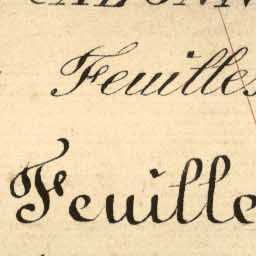 Feuilles
Feuille